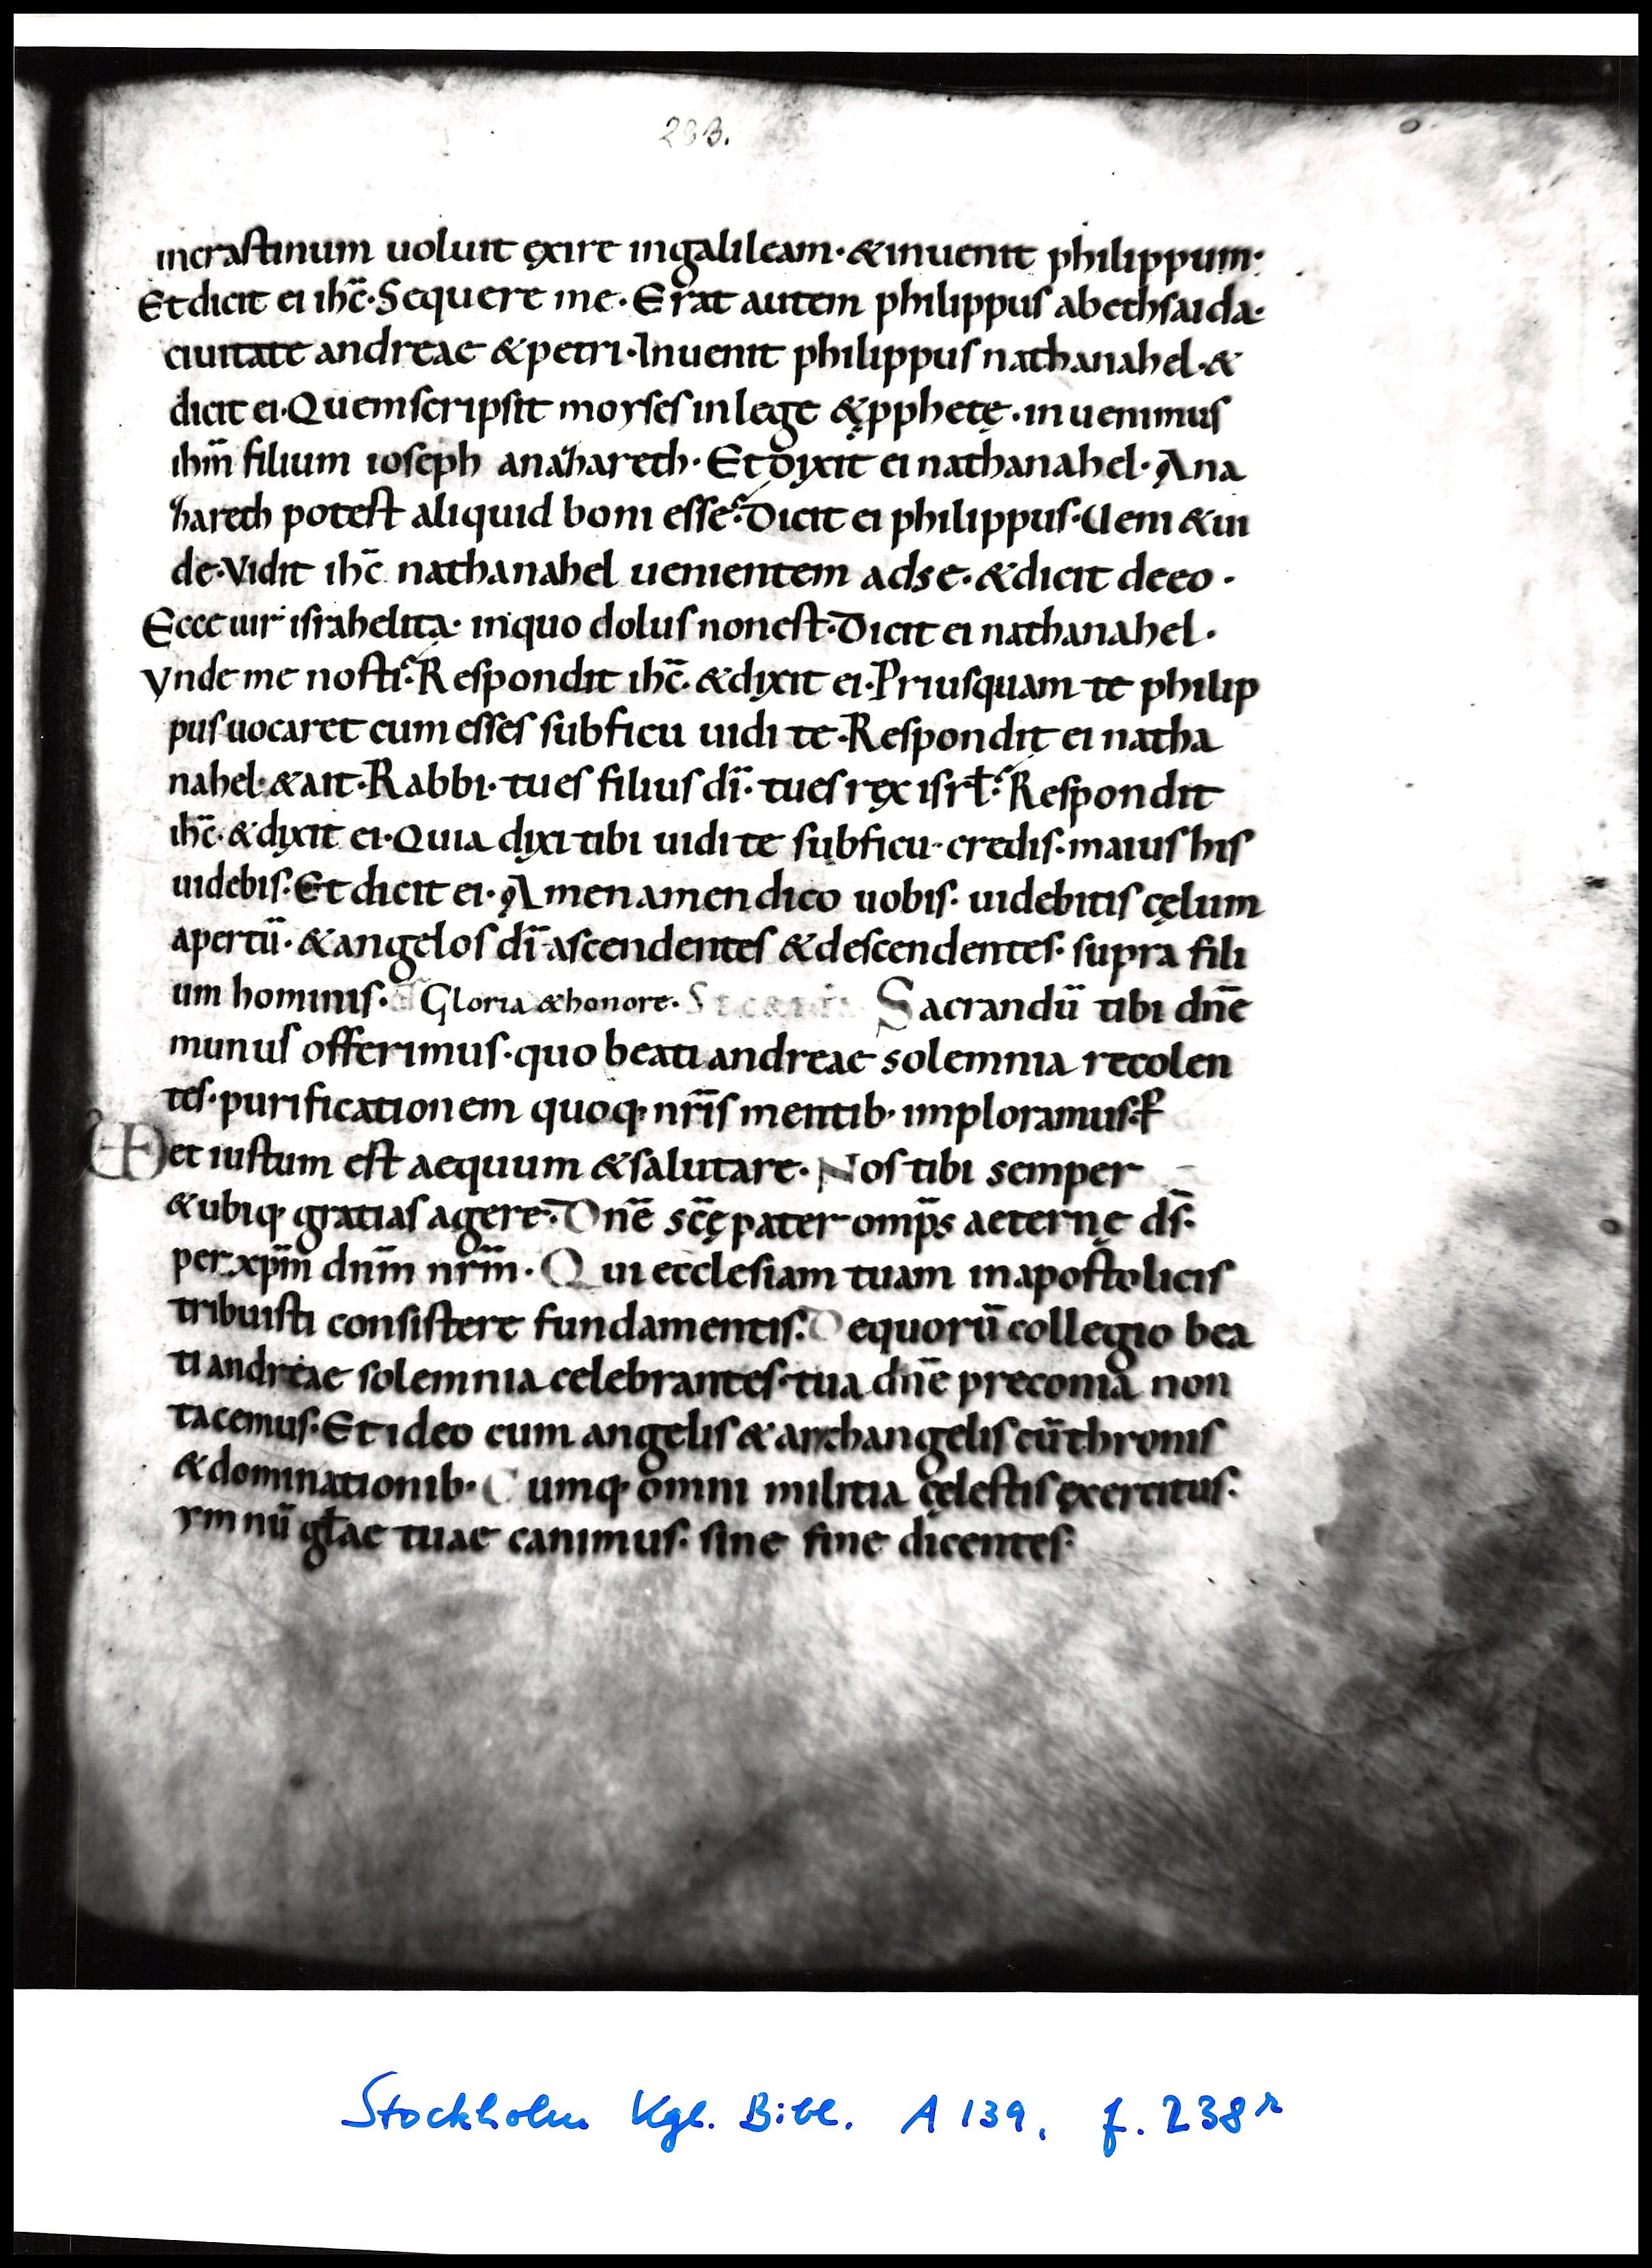 238.
incrastinum uoluit exire ingalileam· &inuenit philippum·
Etdicit ei ihc̄· Sequere me· Erat autem philippus abethsaida·
ciuitate andreae &petri· Inuenit philippus nathanahel· &
dicit ei· Quemscripsit moyses inlege &pphetę· inuenimus
ihm̄ filium ioseph anazareth· Et dixit ei nathanahel· Ana
zareth potest aliquid boni esse? Dicit ei philippus· Ueni &ui
de· Vidit ihc̄ nathanahel uenientem adse· &dicit deeo·
Ecce uir israhelita· inquo dolus nonest· Dicit ei nathanahel·
Vnde me nosti? Respondit ihc̄· &dixit ei· Priusquam te philip
pus uocaret cum esses subficu uidi te· Respondit ei natha
nahel· &ait· Rabbi· tues filius dī· tues rex isrł· Respondit
ihc̄· &dixit ei· Quia dixi tibi uidi te subficu· credis· maius his
uidebis· Et dicit ei· Amen amen dico uobis· uidebitis cęlum
apertū· &angelos dī ascendentes &descendentes· supra fili
um hominis· Gloria &honore· Sacrandū tibi dnē
munus offerimus· quo beati andreae solemnia recolen
tes· purificationem quoq· nrīs mentib· imploramus· P
et iustum est aequum &salutare· Nos tibi semper
&ubiq· gratias agere· Dnē scę̄ pater omp̄s aeternę ds̄·
per xpm̄ dnm̄ nrm̄· Qui ecclesiam tuam inapostolicis
tribuisti consistere fundamentis· Dequorū collegio bea
ti andreae solemnia celebrantes· tua dnē preconia non
tacemus· Et ideo cum angelis & archangelis cū thronis
&dominationib· Cumq· omni militia cęlestis exercitus·
ymnū głae tuae canimus· sine fine dicentes·
Stockholm Kgl. Bibl. A 139, f. 238r